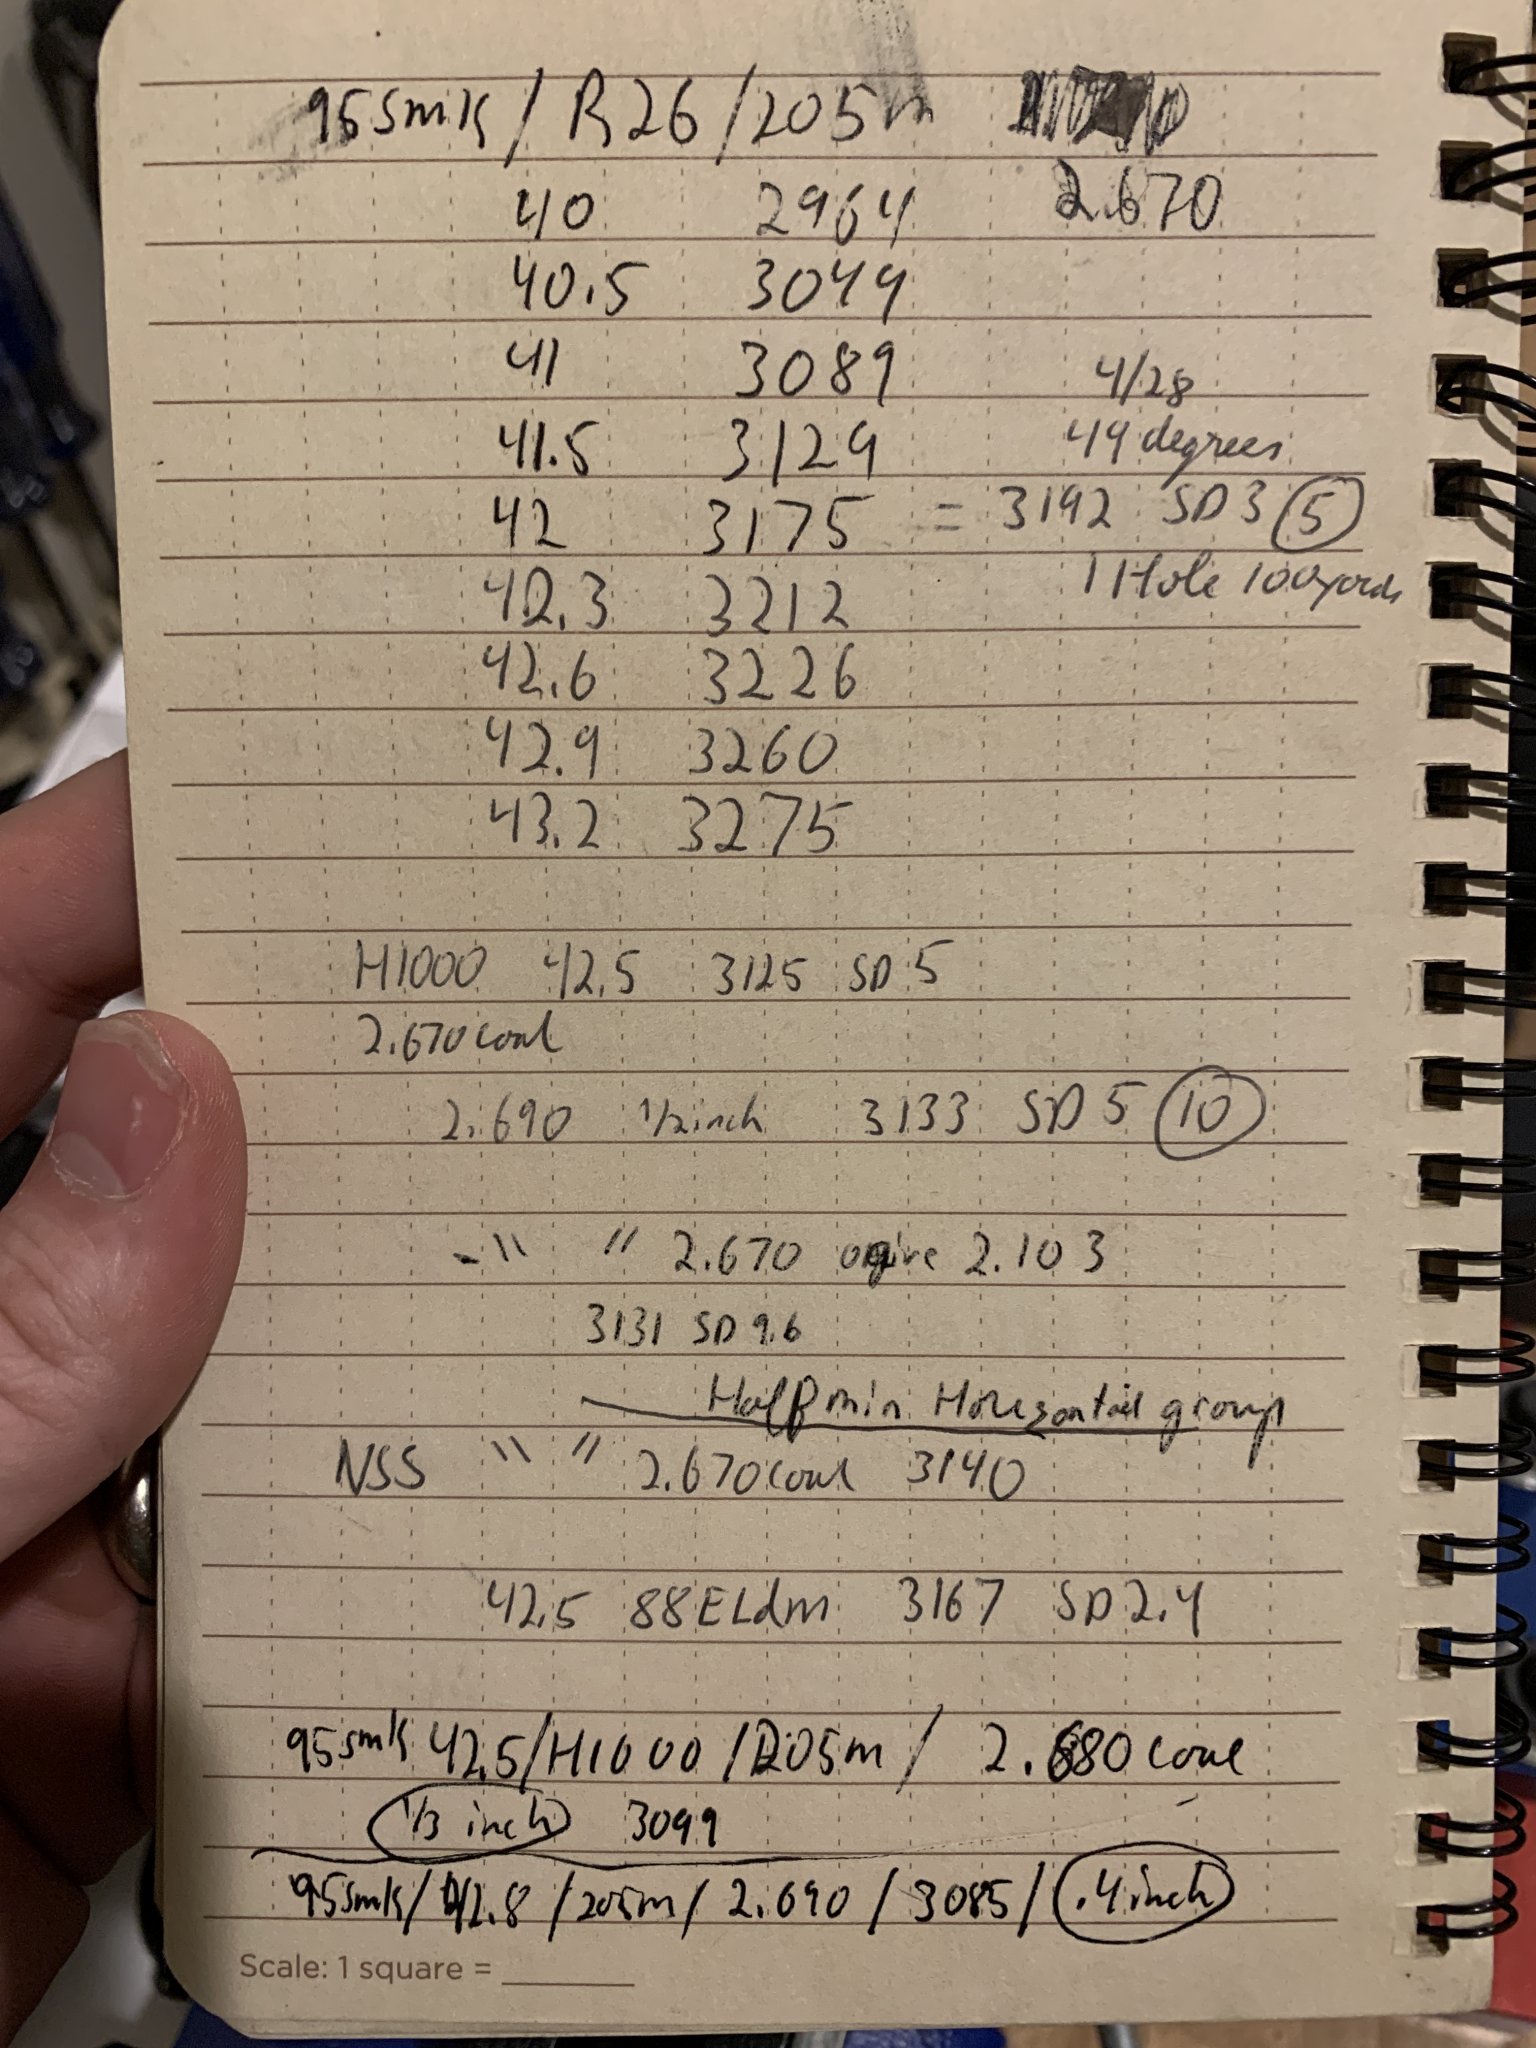 95smk / R26 / 205m
40 2964 2.670
40.5 3049
41 3089 4/28
41.5 3129 49 degrees
42 3175 = 3192 SD 3 5
42.3 3212 1 Hole 100yards
42.6 3226
42.9 3260
43.2 3275
H1000 42.5 3125 SD 5
2.670 coal
2.690 1/2 inch 3133 SD 5 10
-" " 2.670 ogive 2.103
3131 SD 9.6
Half min Horizontal group
NSS " " 2.670 coal 3140
42.5 88ELdm 3167 SD 2.4
95smk 42.5/H1000/205m/ 2.680 coal
1/3 inch 3099
95smk/42.8/205m/2.690/3085/.4inch
Scale: 1 square =